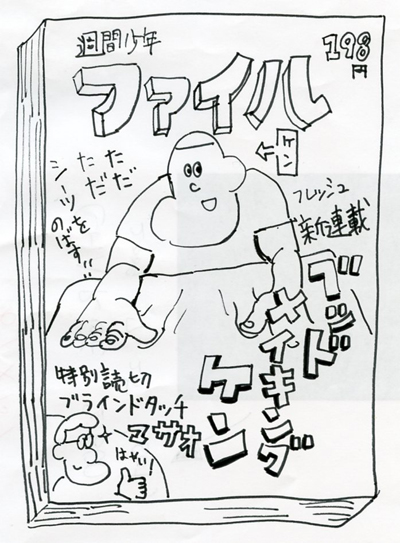 週間少年
ファイル
198
円
←ケン
ただ
ただ
シーツを
のばす…
フレッシュ
新連載
ベッド
メイキング
ケン
特別読切
ブラインドタッチ
マサオ
はやい!